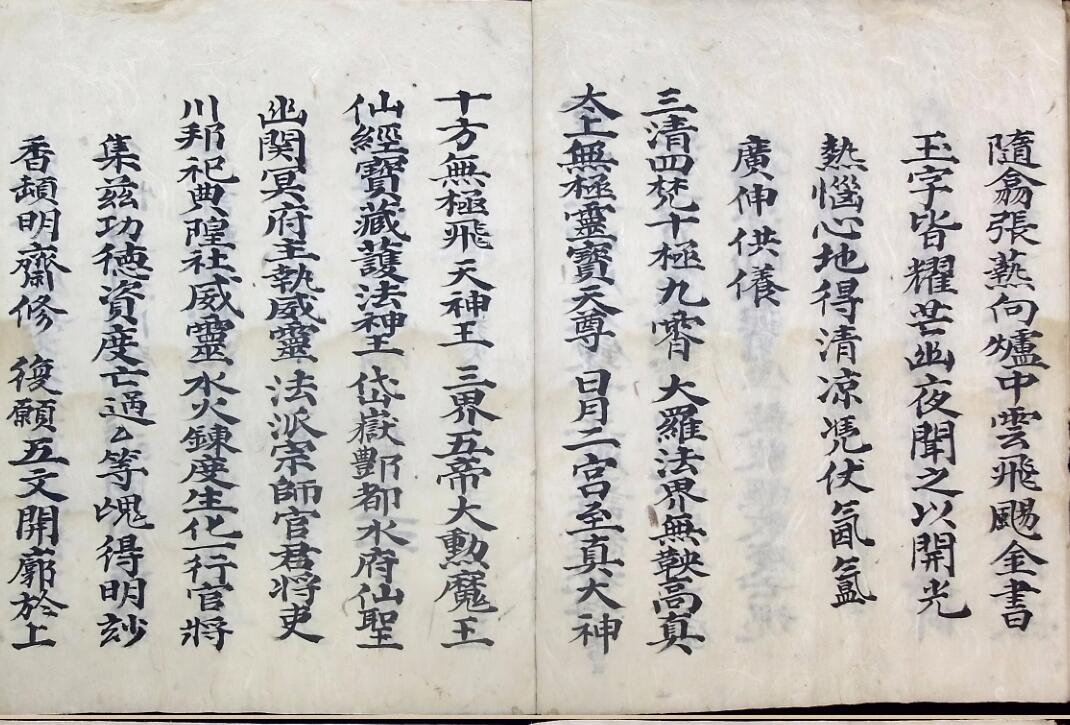 隨龠張爇向爐中雲飛颺金書
玉字皆耀芒幽夜聞之以開光
熱惱心地得清凉凭伏氤氳
廣伸供養
三清四梵十極九霄 大羅法界無鞅高真
太上無極靈寶天尊 日月二宮至真大神
十方無極飛天神王 三界五帝大勲魔王
仙經寶藏護法神王 岱嶽酆都水府仙聖
幽関冥府主執威靈 法派宗師官君將吏
川邦祀典隍社威靈 水火錬度生化一行官將
集兹功德資度亡過厶等魂得明玅
香 明齋修 復願五文開廓於上